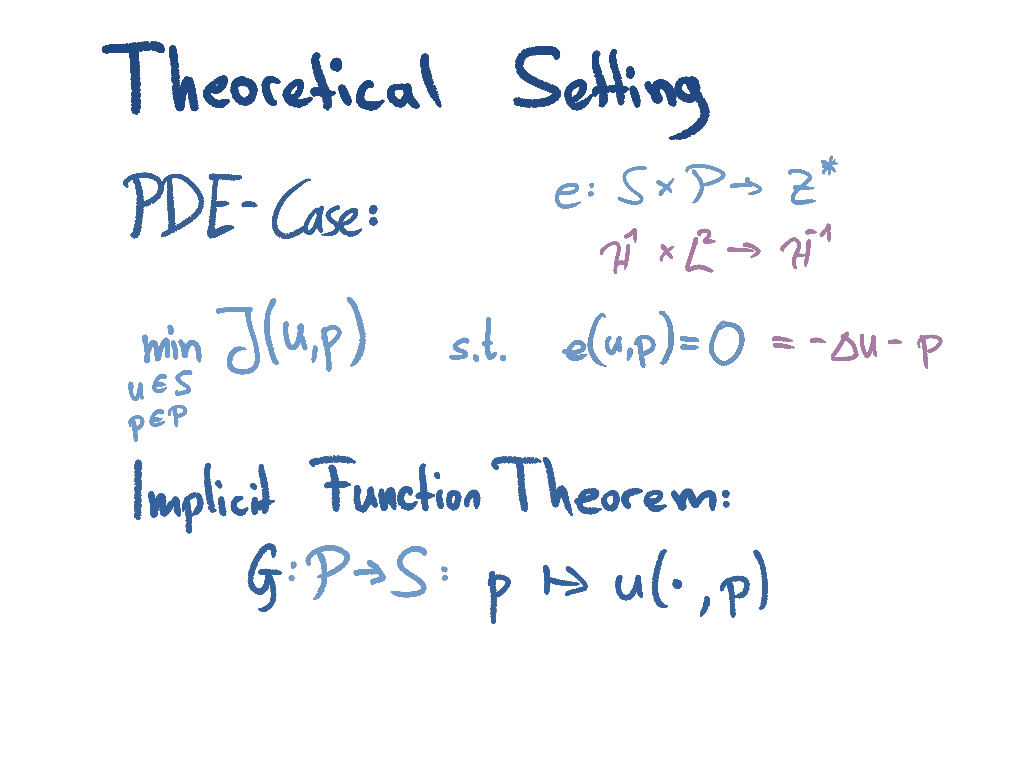 Theoretical Setting
PDE-Case:
e: S × P → Z*
H¹ × L² → H⁻¹
min J(u,p) s.t. e(u,p) = 0 = -Δu - p
u ∈ S
p ∈ P
Implicit Function Theorem:
G: P → S: p ↦ u(·, p)